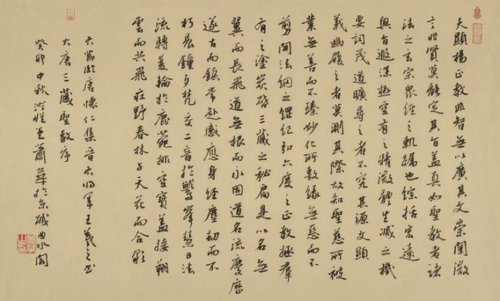 夫顯揚正教非智無以廣其文崇闡微
言非賢莫能定其旨蓋真如聖教者諸
法之玄宗眾經之軌躅也綜括宏遠
奧旨遐深極空有之精微體生滅之機
要詞茂道曠尋之者不究其源文顯
義幽履之者莫測其際故知聖慈所被
業無善而不臻妙化所敷緣無惡而不
剪開法網之綱紀弘六度之正教拯群
有之塗炭啟三藏之秘扃是以名無
翼而長飛道無根而永固道名流慶歷
遂古而鎮常赴感應身經塵劫而不
朽晨鐘夕梵交二音於鷲峰慧日法
流轉雙輪於鹿菀排空寶蓋接翔
雲而共飛莊野春林與天花而合彩
節臨唐懷仁集晉右將軍王羲之書
大唐三藏聖教序
癸卯中秋蕭華於京城曲水閣